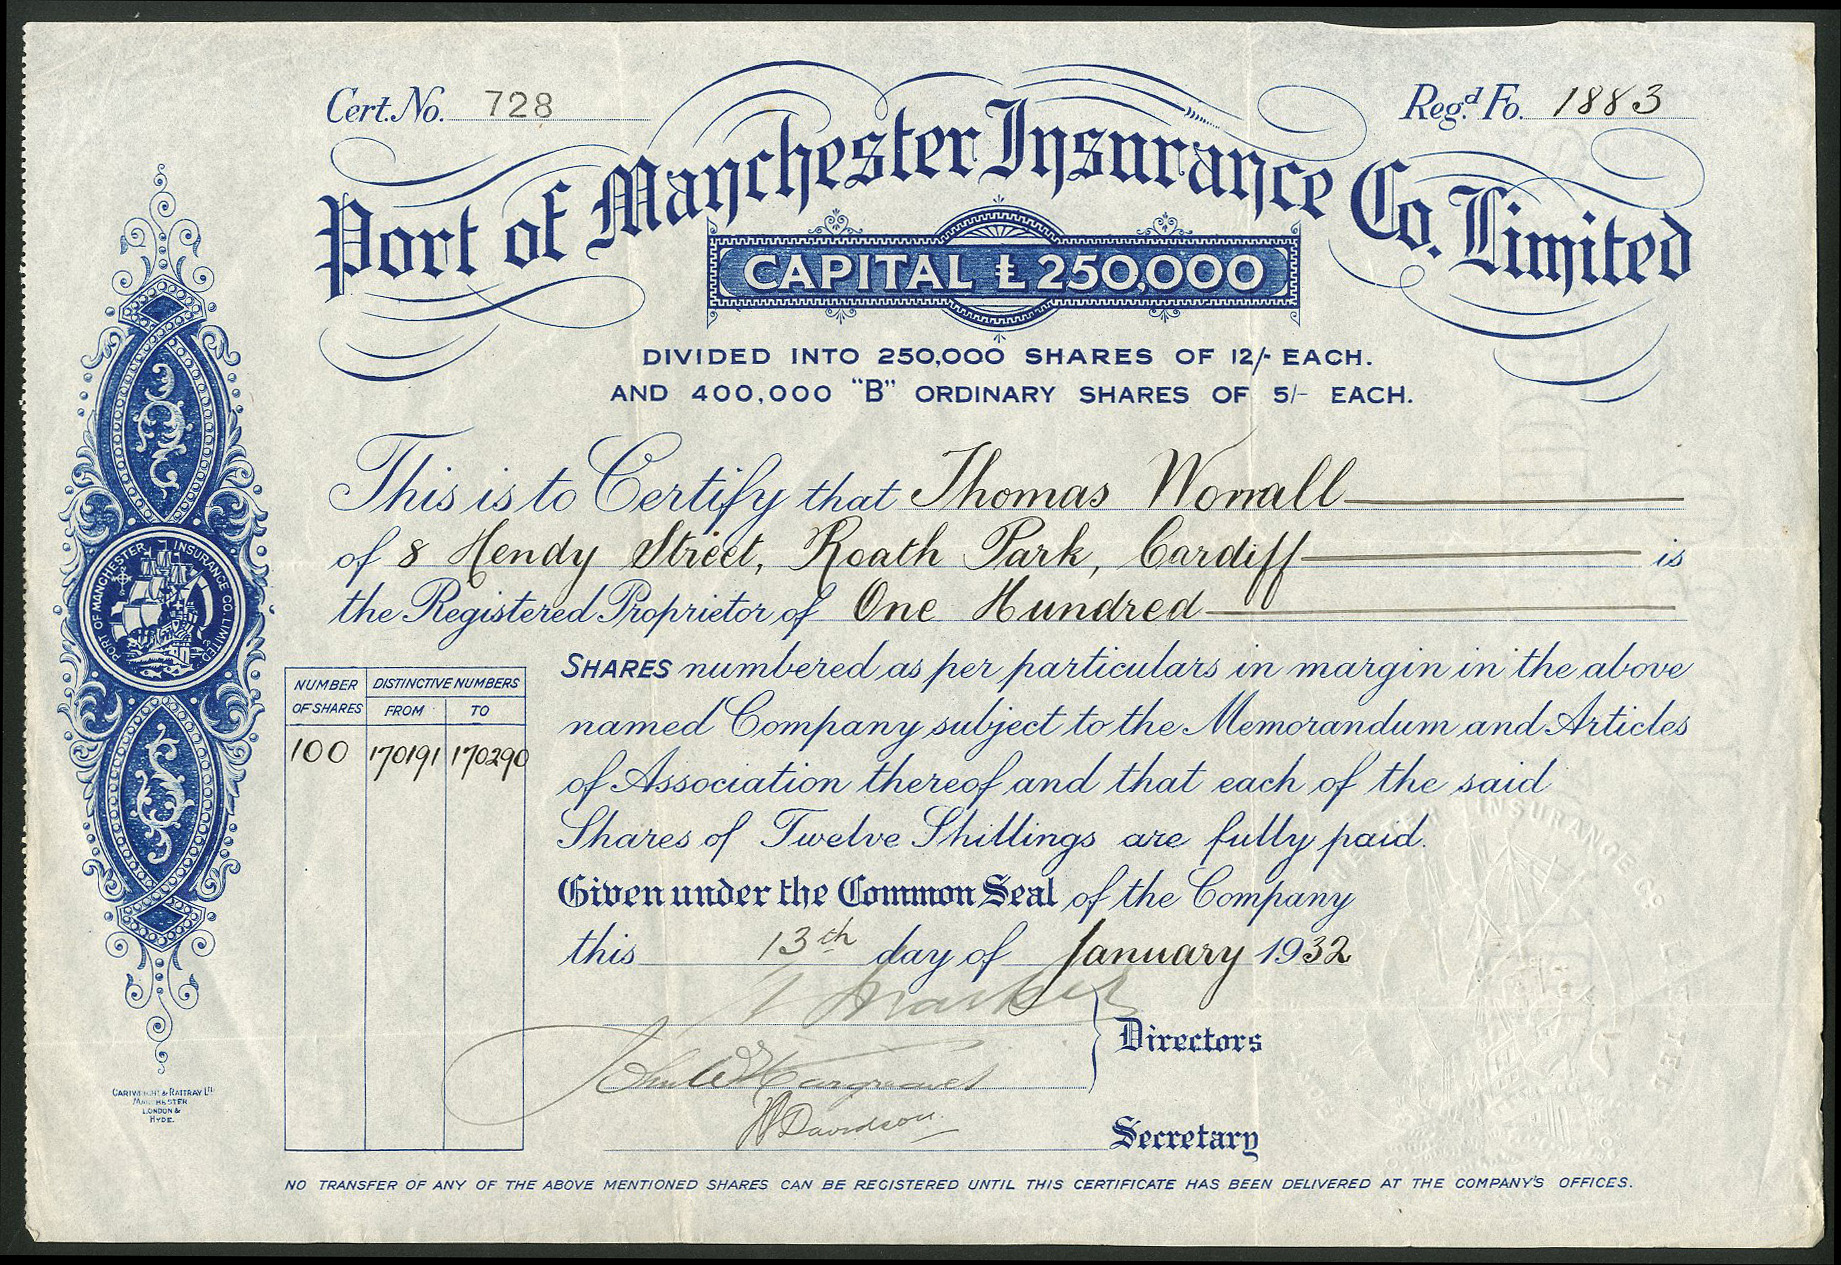 Cert. No. 728
Reg.d Fo. 1883
Port of Manchester Insurance Co. Limited
CAPITAL £250,000
DIVIDED INTO 250,000 SHARES OF 12/- EACH.
AND 400,000 "B" ORDINARY SHARES OF 5/- EACH.
This is to Certify that Thomas Worrall
of 8 Hendy Street, Roath Park, Cardiff is
the Registered Proprietor of One Hundred
SHARES numbered as per particulars in margin in the above
named Company subject to the Memorandum and Articles
of Association thereof and that each of the said
Shares of Twelve Shillings are fully paid.
Given under the Common Seal of the Company
this 13th day of January 1932
NUMBER OF SHARES
DISTINCTIVE NUMBERS
FROM TO
100 170191 170290
PORT OF MANCHESTER INSURANCE CO. LIMITED.
Directors
John W Hargreaves
Davidson
Secretary
CARTWRIGHT & RATTRAY LTD
MANCHESTER
LONDON &
HYDE.
NO TRANSFER OF ANY OF THE ABOVE MENTIONED SHARES CAN BE REGISTERED UNTIL THIS CERTIFICATE HAS BEEN DELIVERED AT THE COMPANY'S OFFICES.
INSURANCE CO